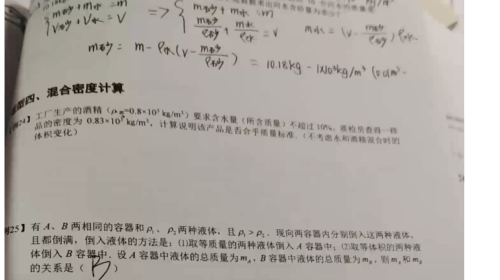 m砂+m水=m
V砂+V水=V
=> { m砂+m水=m
m砂/ρ砂 + m水/ρ水 = V
m水=(V-m砂/ρ砂)ρ水
m砂 = m-ρ水(V-m砂/ρ砂) = 10.18kg-1×10³kg/m³(
四、混合密度计算
工厂生产的酒精(=0.8×10³ kg/m³)要求含水量(所含质量)不超过10%,质检员查得一样
品的密度为 0.83×10³ kg/m³,计算说明该产品是否合乎质量标准.(不考虑水和酒精混合时的
体积变化)
25】有 A、B 两相同的容器和 ρ₁、ρ₂两种液体,且 ρ₁>ρ₂.现向两容器内分别倒入这两种液体,
且都倒满,倒入液体的方法是:(1)取等质量的两种液体倒入 A 容器中;(2)取等体积的两种液
体倒入 B 容器中.设 A 容器中液体的总质量为 mA,B 容器中液体的总质量为 mB,则 mA 和 mB
的关系是( B )